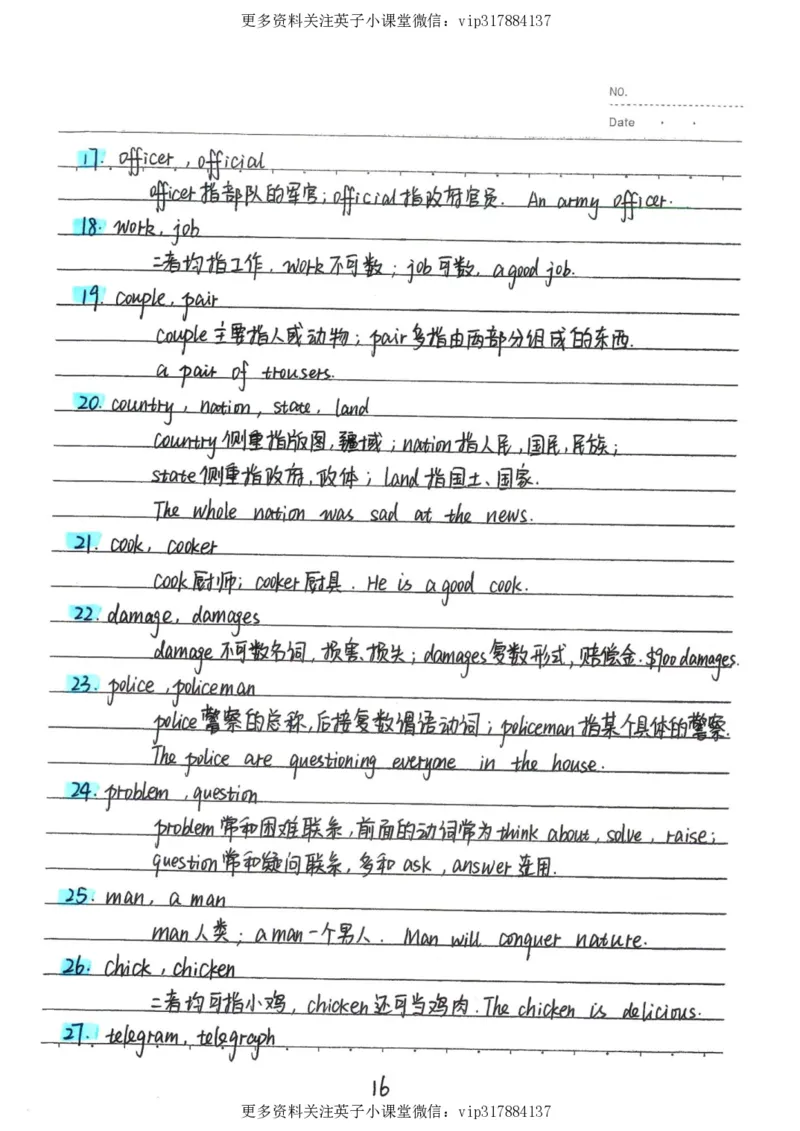 更多资料关注英子小课堂微信：vip317884137
NO.
Date
17. officer , official
officer指部队的军官；official指政府官员. An army officer.
18. work, job
二者均指工作. work不可数；job可数. a good job.
19. couple, pair
couple主要指人或动物；pair多指由两部分组成的东西.
a pair of trousers.
20. country, nation, state, land
country侧重指版图,疆域；nation指人民,国民,民族；
state侧重指政府,政体；land指国土、国家.
The whole nation was sad at the news.
21. cook, cooker
cook厨师；cooker厨具. He is a good cook.
22. damage, damages
damage不可数名词,损害、损失；damages复数形式,赔偿金.$900 damages.
23. police, policeman
police警察的总称,后接复数谓语动词；policeman指某个具体的警察.
The police are questioning everyone in the house.
24. problem, question
problem常和困难联系,前面的动词常为think about, solve, raise；
question常和疑问联系,多和ask, answer连用.
25. man, a man
man人类；a man一个男人. Man will conquer nature.
26. chick, chicken
二者均可指小鸡, chicken还可当鸡肉. The chicken is delicious.
27. telegram, telegraph
16
更多资料关注英子小课堂微信：vip317884137